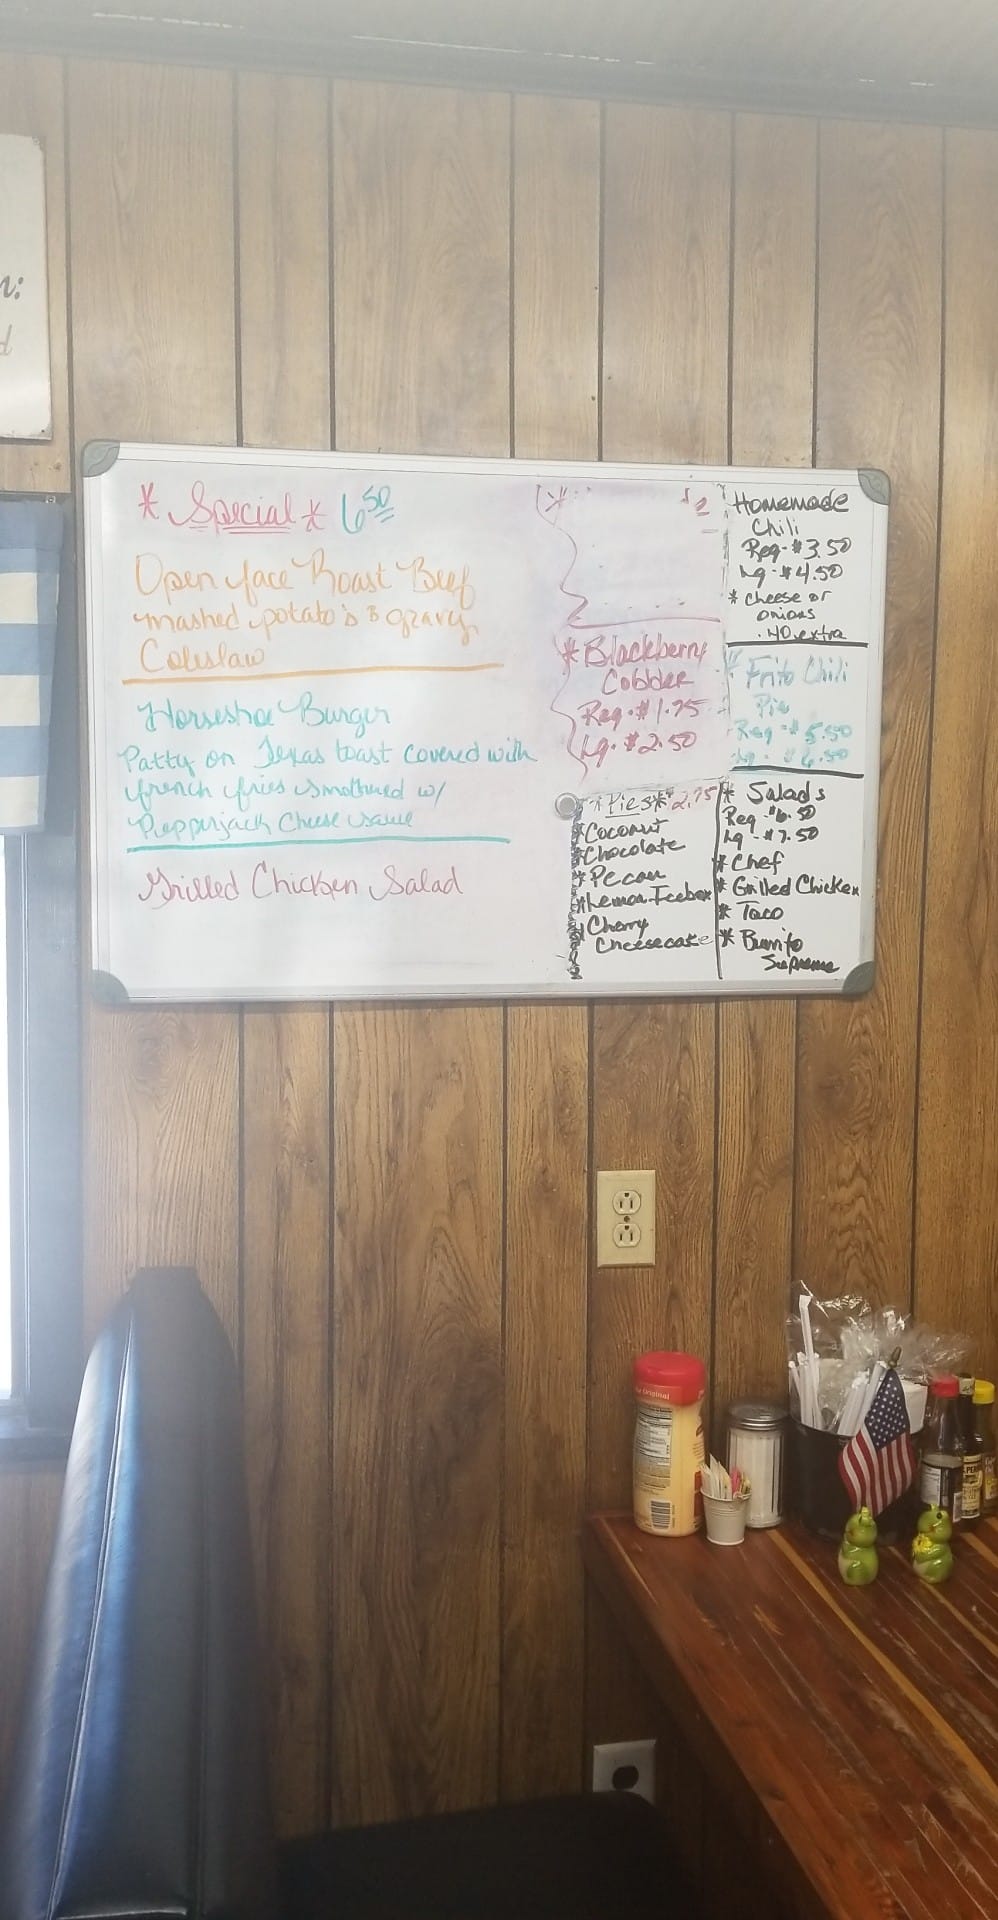 n:
d
* Special * 6 50
Open face Roast Beef
mashed potato's & gravy
Coleslaw
Horseshoe Burger
Patty on Texas toast covered with
french fries smothered w/
Pepperjack Cheese sauce
Grilled Chicken Salad
* Blackberry
Cobbler
Reg. $1.75
Lg. $2.50
* Pies * 2.75
* Coconut
* Chocolate
* Pecan
* Lemon Icebox
* Cherry
Cheesecake
Homemade
Chili
Reg - $3.50
Lg - $4.50
* cheese or
onions
.40 extra
* Frito Chili
Pie
Reg - $5.50
Lg - $6.50
* Salads
Reg. $6.50
Lg. $7.50
* Chef
* Grilled Chicken
* Taco
* Burrito
Supreme
Original